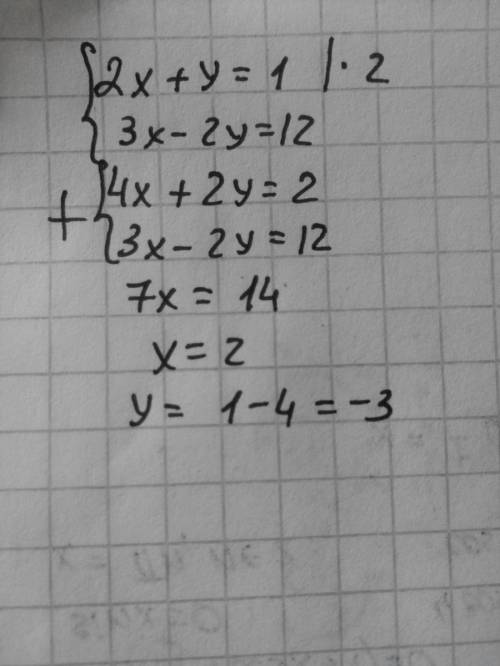 {2x + y = 1 | · 2
3x - 2y = 12
+ {4x + 2y = 2
3x - 2y = 12
7x = 14
x = 2
y = 1 - 4 = -3